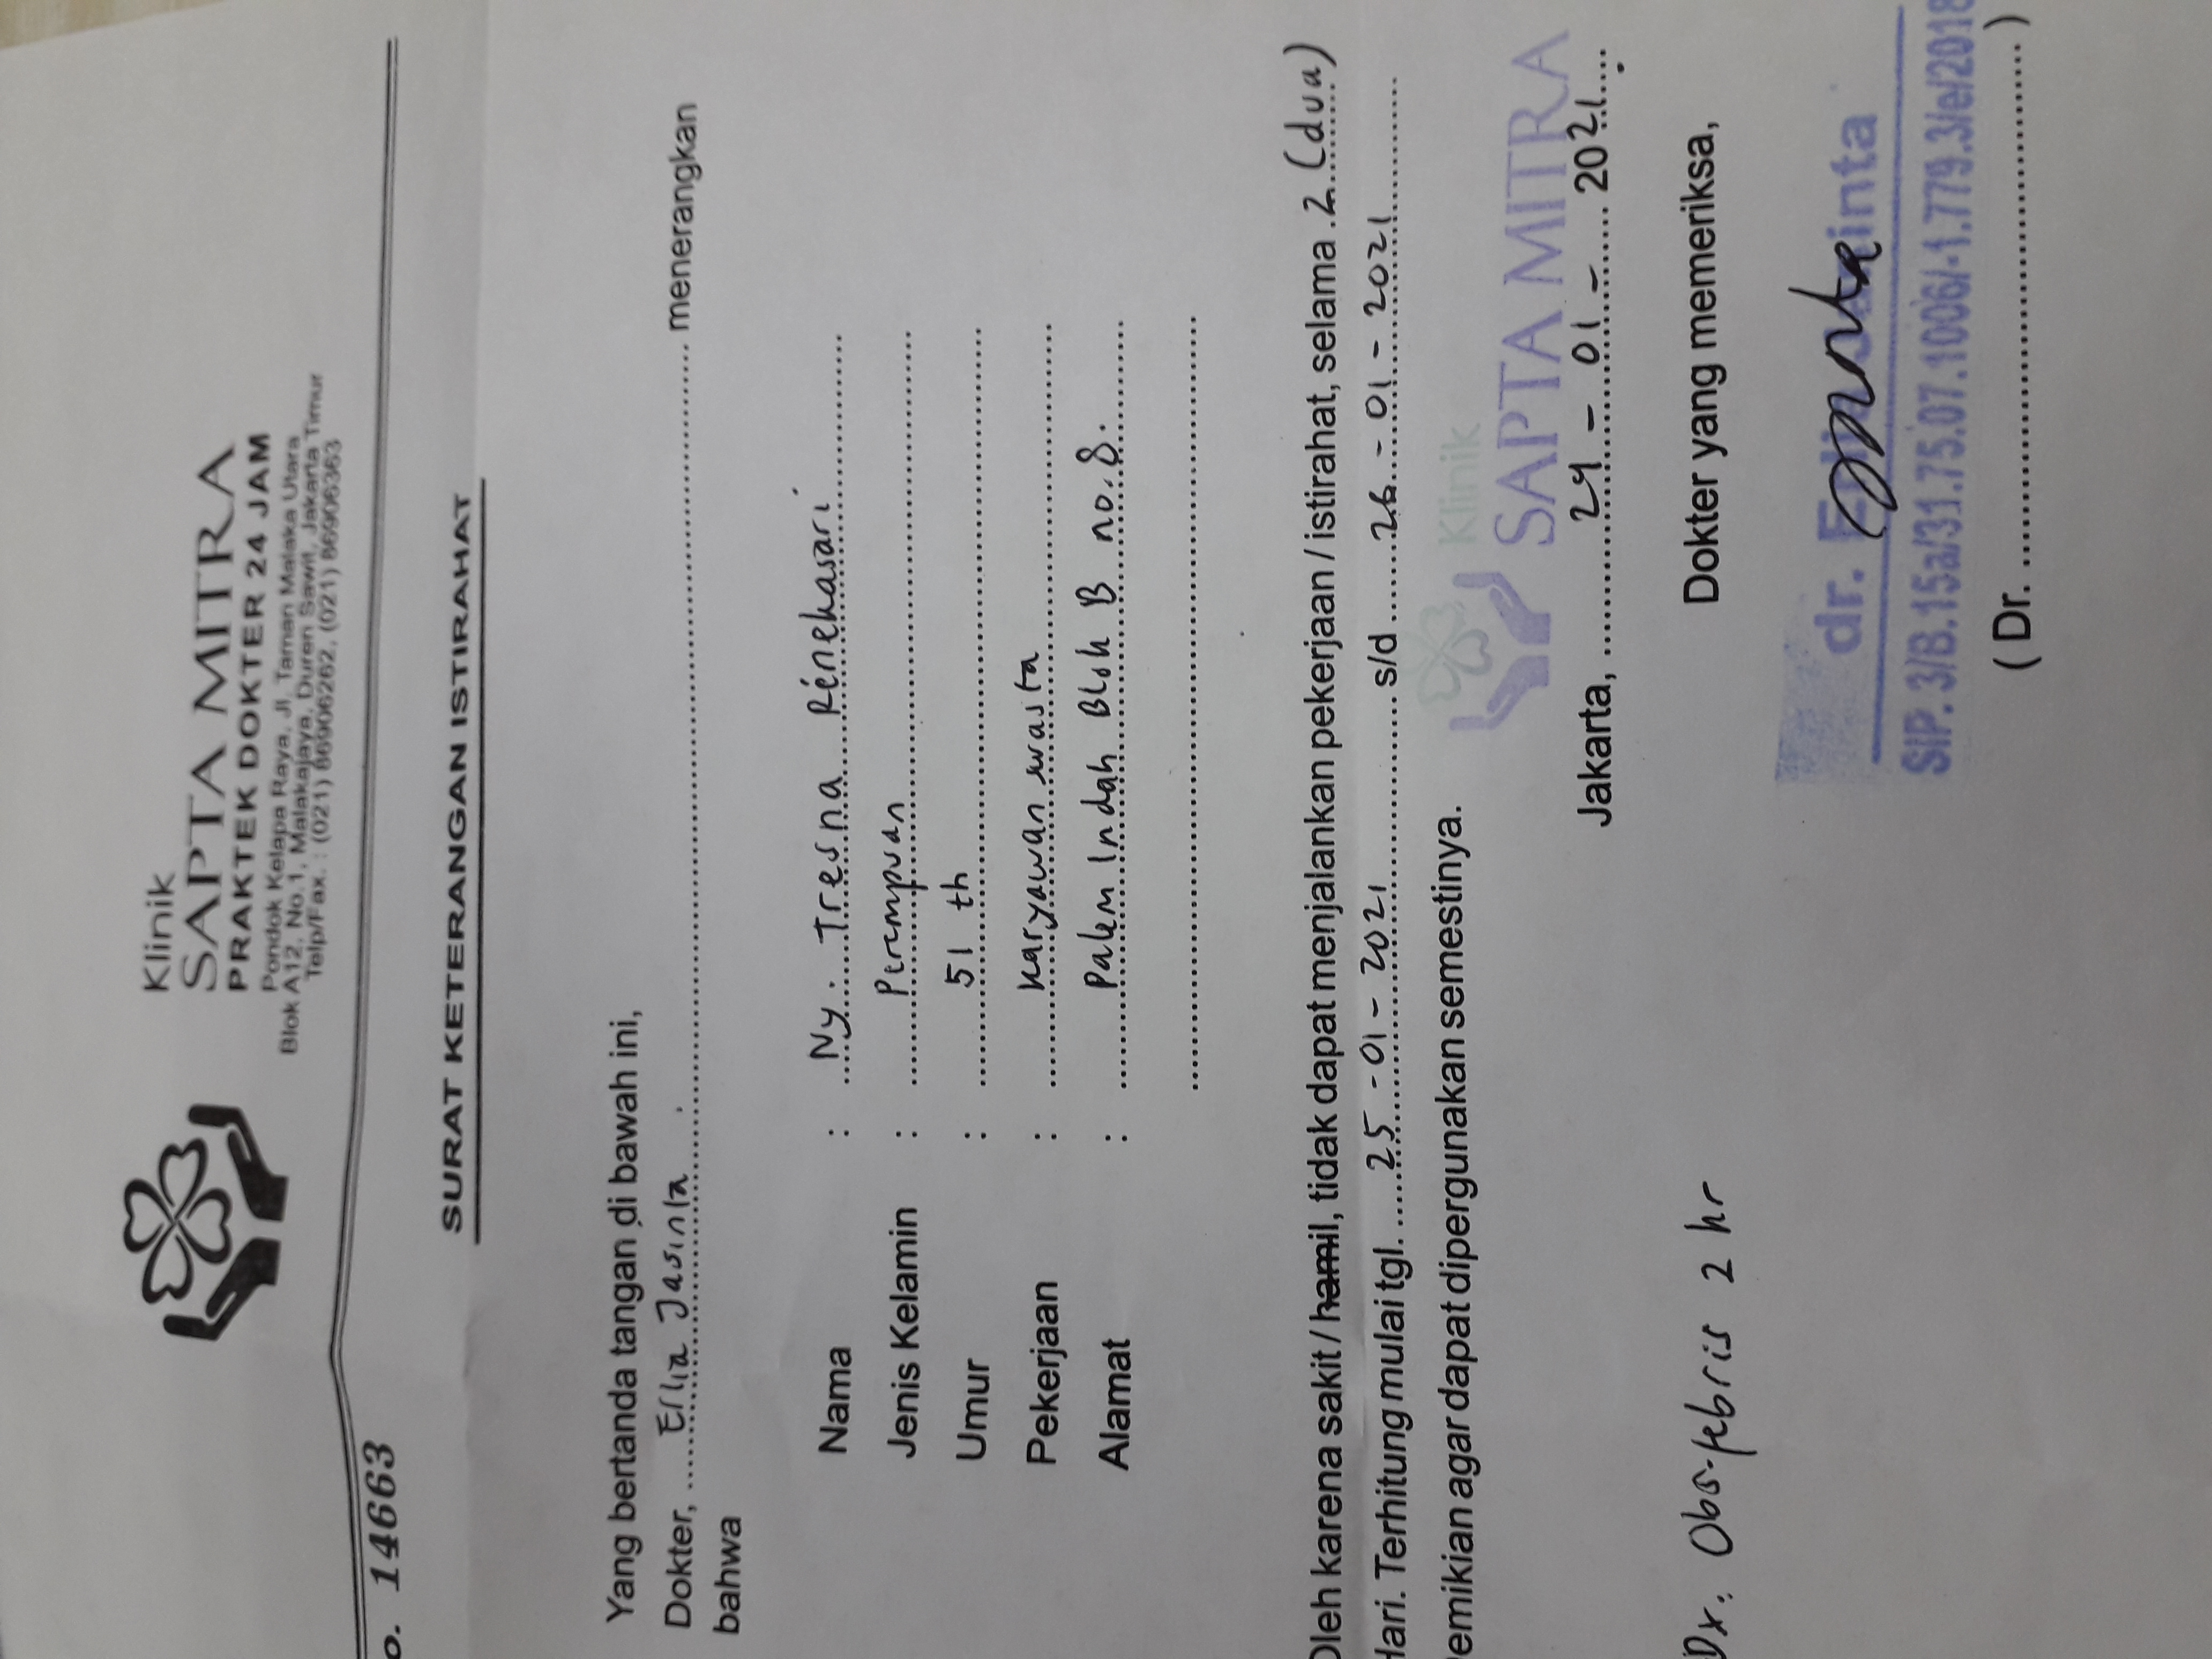 Klinik
SAPTA MITRA
PRAKTEK DOKTER 24 JAM
Pondok Kelapa Raya, Jl. Taman Malaka Utara
Blok A12, No.1, Malakajaya, Duren Sawit, Jakarta Timur
Telp/Fax. : (021) 86906262, (021) 86906363
o. 14663
SURAT KETERANGAN ISTIRAHAT
Yang bertanda tangan di bawah ini,
Dokter, Erlia Jasinta menerangkan
bahwa
Nama : Ny. Tresna Rinekasari
Jenis Kelamin : Perempuan
Umur : 51 th
Pekerjaan : Karyawan swasta
Alamat : Palem Indah Blok B no.8.
Oleh karena sakit / hamil, tidak dapat menjalankan pekerjaan / istirahat, selama 2 (dua)
Hari. Terhitung mulai tgl. 25-01-2021 s/d 26-01-2021
Demikian agar dapat dipergunakan semestinya.
Klinik
SAPTA MITRA
Jakarta, - 01 - 2021
Dx. Obs. febris 2 hr
Dokter yang memeriksa,
dr. Erlia Jasinta
SIP. 3/B.15a/31.75.07.1006/-1.779.3/e/2018
( Dr. .......................................... )